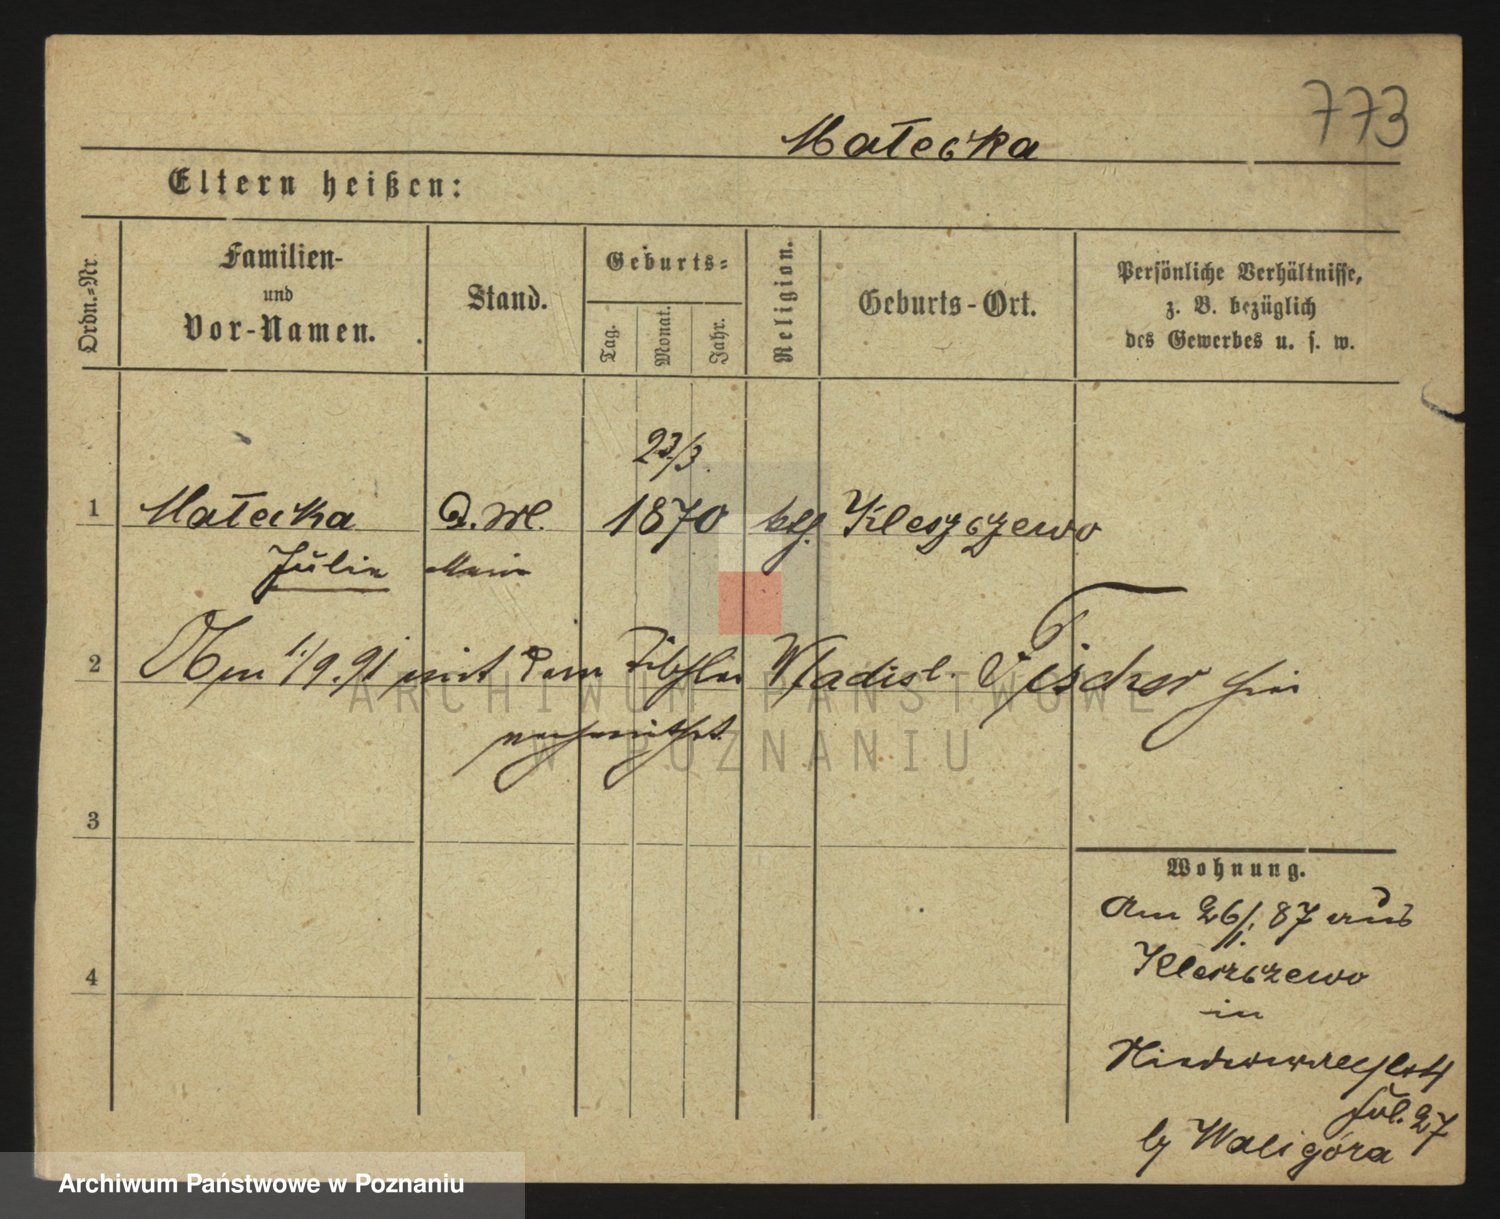 773
Małecka
Eltern heißen:
Ordn.-Nr.
Familien-
und
Vor-Namen.
Stand.
Geburts-
Tag.
Monat.
Jahr.
Religion.
Geburts-Ort.
Persönliche Verhältnisse,
z. B. bezüglich
des Gewerbes u. s. w.
23/3.
1 Małecka D. M. 1870 kth. Kleszczewo
Julie
2 Am 1/9. 91 mit dem Tischler Wladisl. Fischer hier
verheirathet
3
4
Wohnung.
Am 26/1. 87 aus
Kleszczewo
in
Jul. 27
by Waligóra
ARCHIWUM PAŃSTWOWE
W POZNANIU
Archiwum Państwowe w Poznaniu